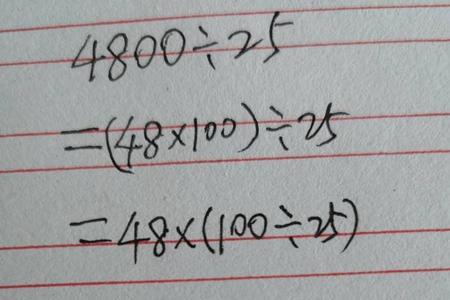 4800÷25
=(48×100)÷25
=48×(100÷25)